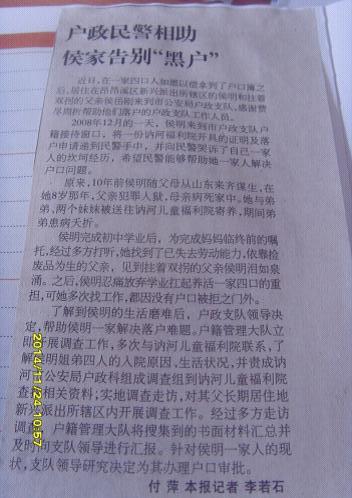 户政民警相助
侯家告别“黑户”
近日,在一家四口人如愿以偿拿到了户口簿之
后,居住在昂昂溪区新兴派出所辖区的侯明和拄着
双拐的父亲侯岳刚来到市公安局户政支队,感谢费
尽周折帮助他们落户的户政支队工作人员。
2008年12月的一天,侯明来到市户政支队户
籍接待窗口,将一份讷河福利院开具的证明及落
户申请递到民警手中,并向民警哭诉了自己一家
人的坎坷经历,希望民警能够帮助她一家人解决
户口问题。
原来,10年前侯明随父母从山东来齐谋生,在
她8岁那年,父亲犯罪入狱,母亲病死家中。她与弟
弟、两个妹妹被送往讷河儿童福利院寄养,期间弟
弟患病夭折。
侯明完成初中学业后,为完成妈妈临终前的嘱
托,经过多方打听,她找到了已失去劳动能力、依靠捡
废品为生的父亲,见到拄着双拐的父亲侯明泪如泉
涌。之后,侯明忍痛放弃学业扛起养活一家四口的重
担,可她多次找工作,都因没有户口被拒之门外。
了解到侯明的生活磨难后,户政支队领导决
定,帮助侯明一家解决落户难题。户籍管理大队立
即开展调查工作,多次与讷河福利院联系,了
解侯明姐弟四人的入院原因、生活状况,并责成讷
河市公安局户政科组成调查组到讷河儿童福利院
查找相关资料;实地调查走访,对其父长期居住地
新兴派出所辖区内开展调查工作。经过多方走访
调查,户籍管理大队将搜集到的书面材料汇总并
及时向支队领导进行汇报。针对侯明一家人的现
状,支队领导研究决定为其办理户口审批。
付 萍 本报记者 李若石
2014/11/24 10:57